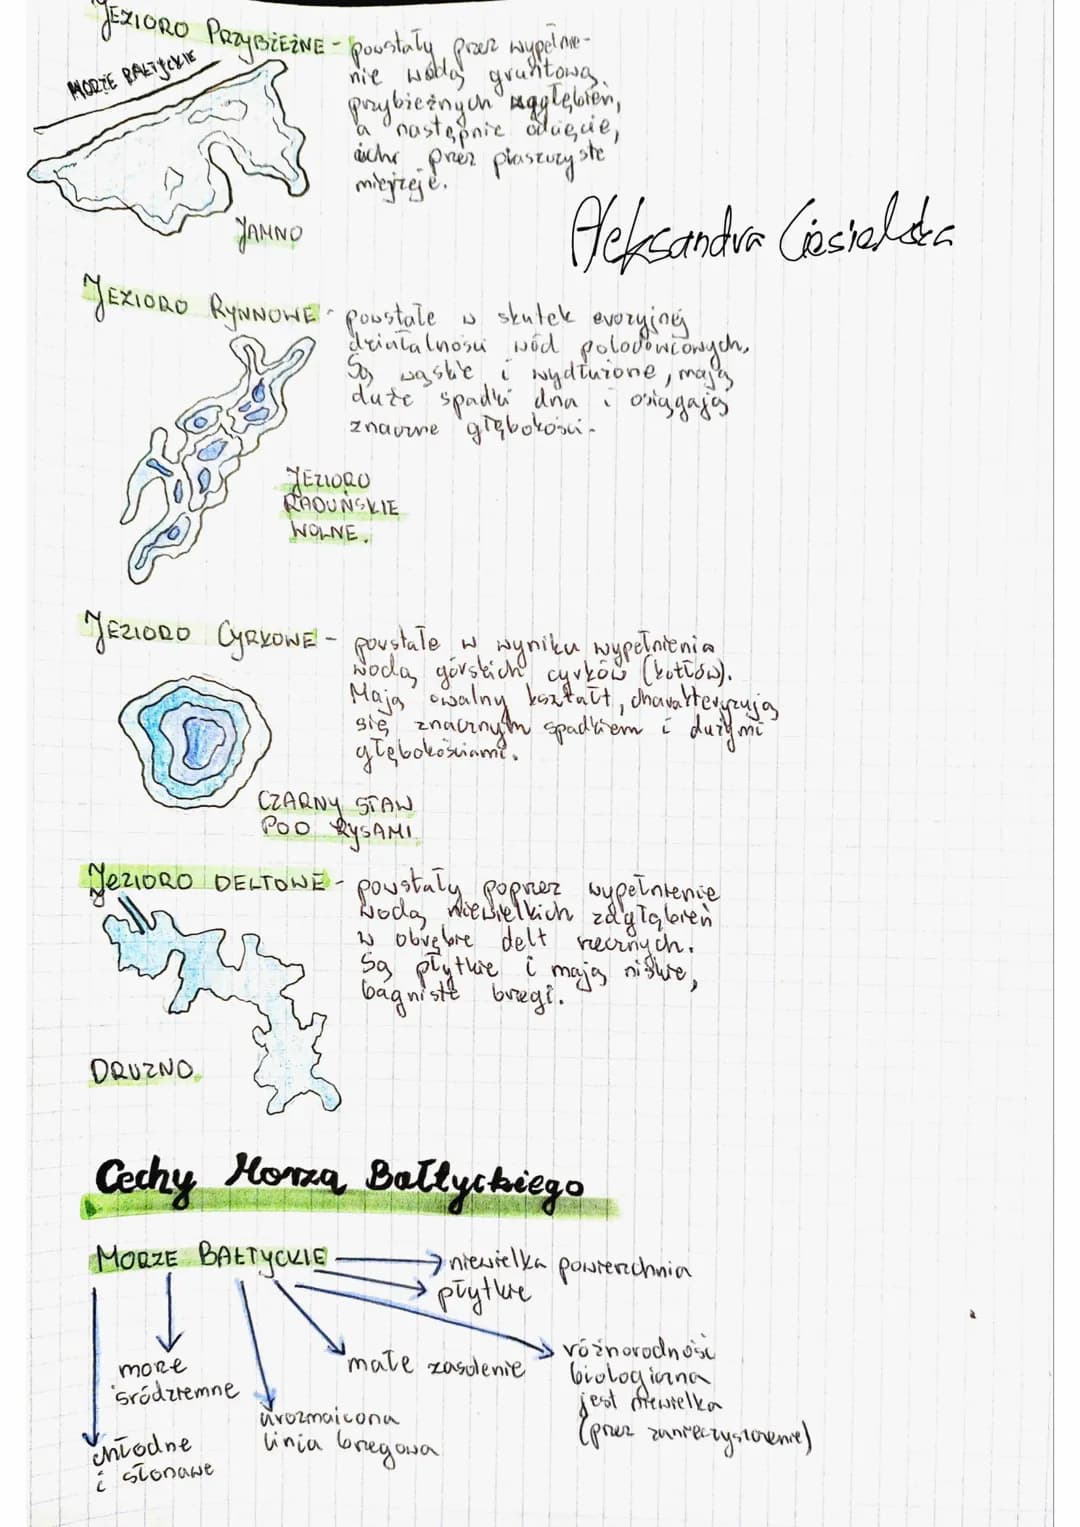 JEZIORO PRZYBRZEŻNE - powstały przez wypełnie-
nie wodą gruntową
przybrzeżnych zagłębień,
a następnie odcięcie,
ich przez piaszczyste
mierzeje.
MORZE BAŁTYCKIE
JAMNO
Aleksandra Ciesielska
JEZIORO RYNNOWE - powstałe w skutek erozyjnej
działalności wód polodowcowych.
Są wąskie i wydłużone, mają
duże spadki dna i osiągają
znaczne głębokości.
JEZIORO
RADUŃSKIE
WOLNE.
JEZIORO CYRKOWE - powstałe w wyniku wypełnienia
wodą górskich cyrków (kotłów).
Mają owalny kształt, charakteryzują
się znacznym spadkiem i dużymi
głębokościami.
CZARNY STAW
POD RYSAMI
JEZIORO DELTOWE - powstały poprzez wypełnienie
wodą niewielkich zagłębień
w obrębie delt rzecznych.
Są płytkie i mają niskie,
bagniste brzegi.
DRUZNO.
Cechy Morza Bałtyckiego
MORZE BAŁTYCKIE
niewielka powierzchnia
płytkie
różnorodność
biologiczna
jest niewielka
(przez zanieczyszczenie)
małe zasolenie
morze
śródziemne
urozmaicona
linia brzegowa
chłodne
i słonawe